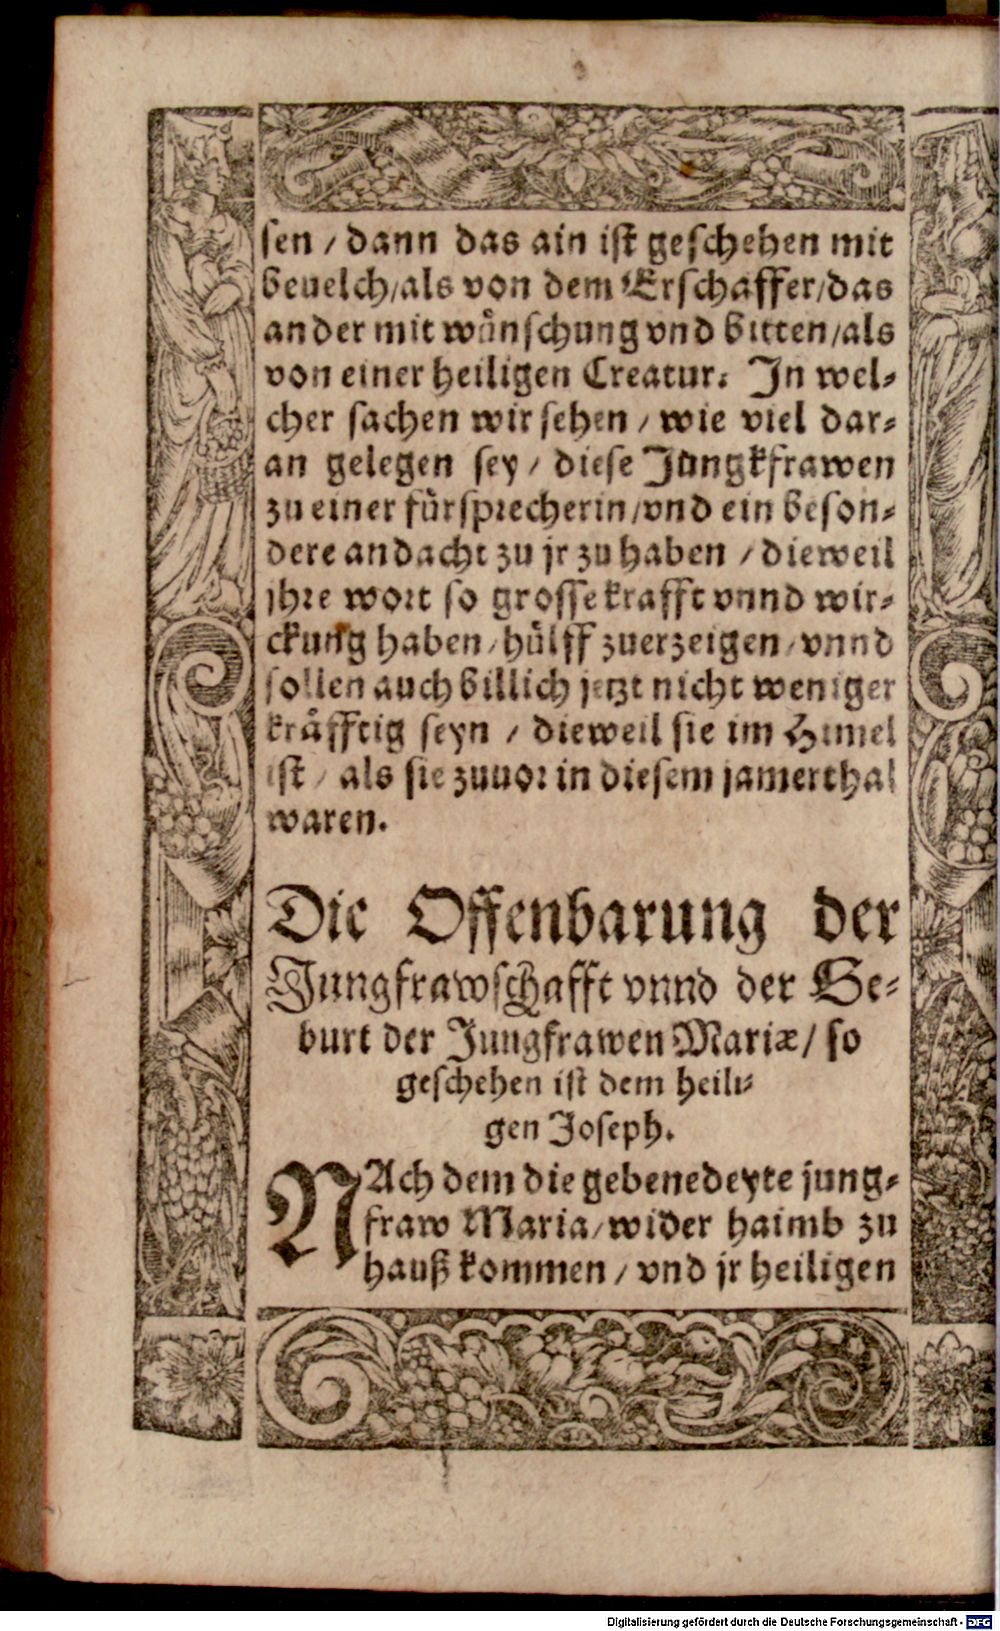 sen / dann das ain ist geschehen mit
beuelch/als von dem Erschaffer/das
ander mit wünschung vnd bitten/als
von einer heiligen Creatur. In wel-
cher sachen wir sehen / wie viel dar-
an gelegen sey / diese Jungkfrawen
zu einer fürsprecherin/vnd ein beson-
dere andacht zu jr zu haben / dieweil
jhre wort so grosse krafft vnnd wir-
ckung haben/hülff zuerzeigen/vnnd
sollen auch billich jetzt nicht weniger
kräfftig seyn / dieweil sie im Himel
ist / als sie zuuor in diesem jamerthal
waren.
Die Offenbarung der
Jungfrawschafft vnnd der Ge-
burt der Jungfrawen Mariæ/ so
geschehen ist dem heili-
gen Joseph.
NAch dem die gebenedeyte jung-
fraw Maria/wider haimb zu
hauß kommen / vnd jr heiligen
Digitalisierung gefördert durch die Deutsche Forschungsgemeinschaft - DFG